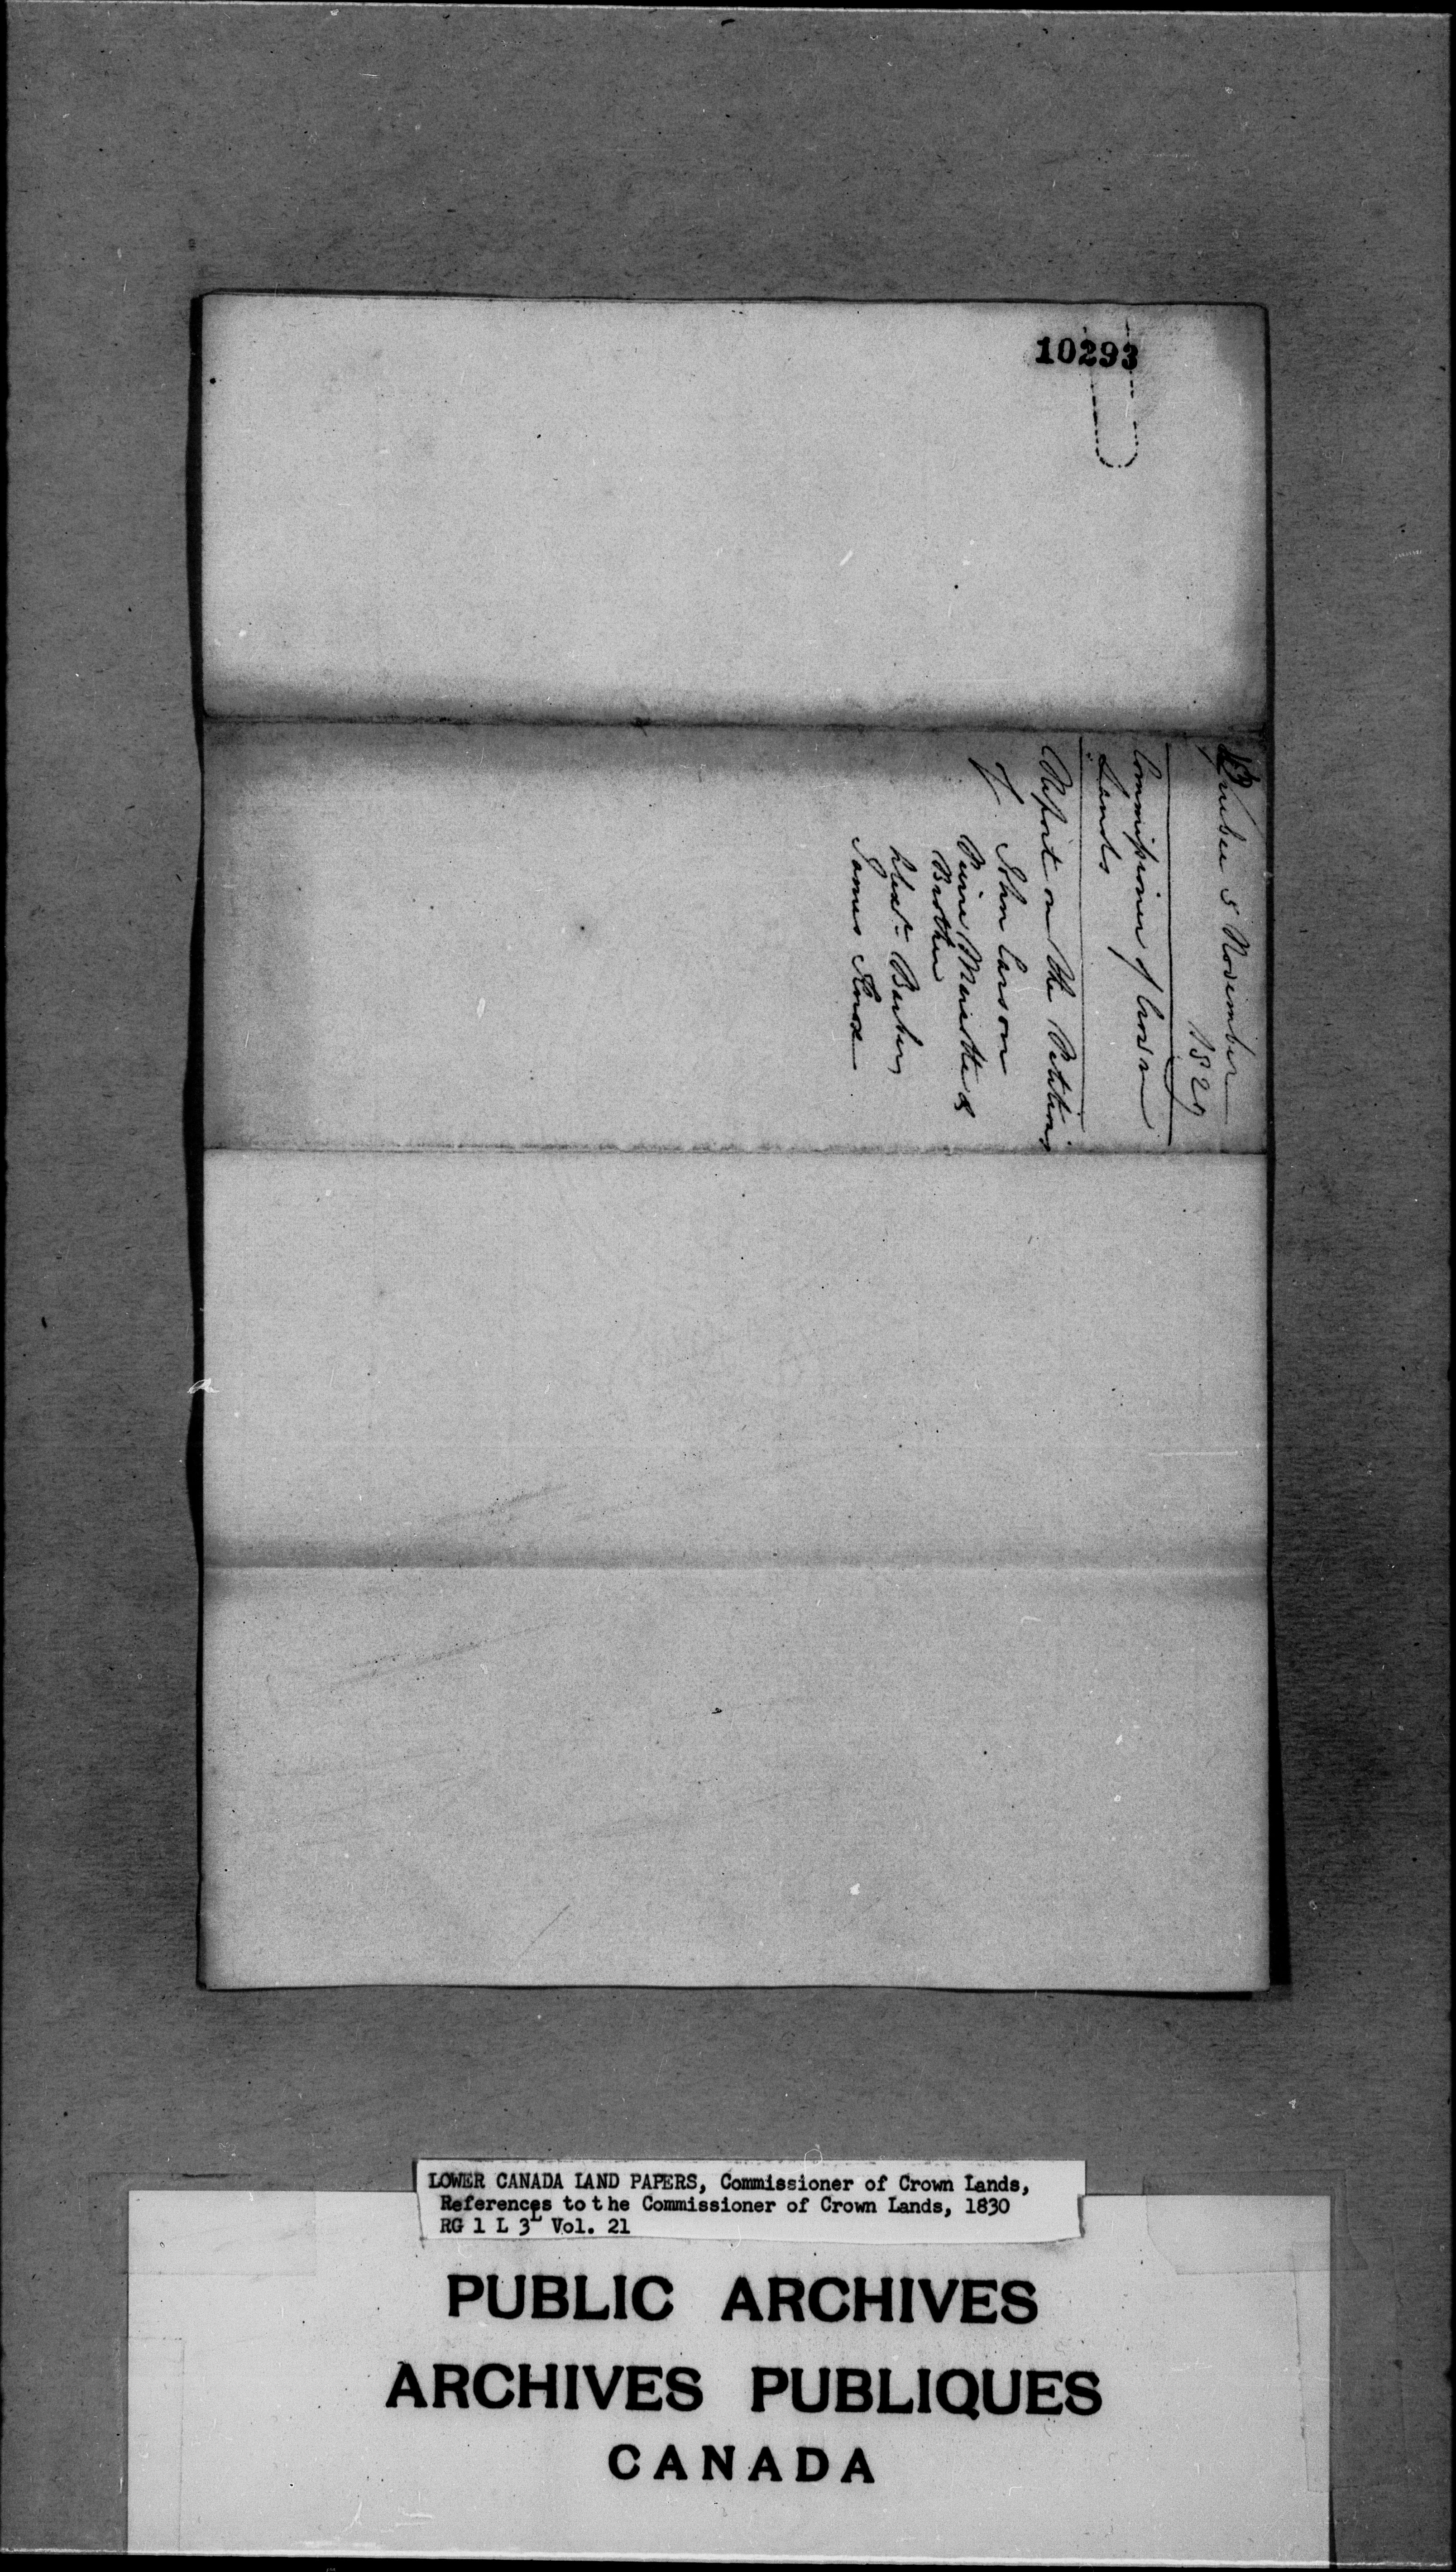 10293
Quebec 5 November
1829
Commissioner of Crown
Lands
Report on the Petitions
of John Carson
Pierre &
Brother
Robert Barber
James Knox
LOWER CANADA LAND PAPERS, Commissioner of Crown Lands,
References to the Commissioner of Crown Lands, 1830
RG 1 L 3L Vol. 21
PUBLIC ARCHIVES
ARCHIVES PUBLIQUES
CANADA